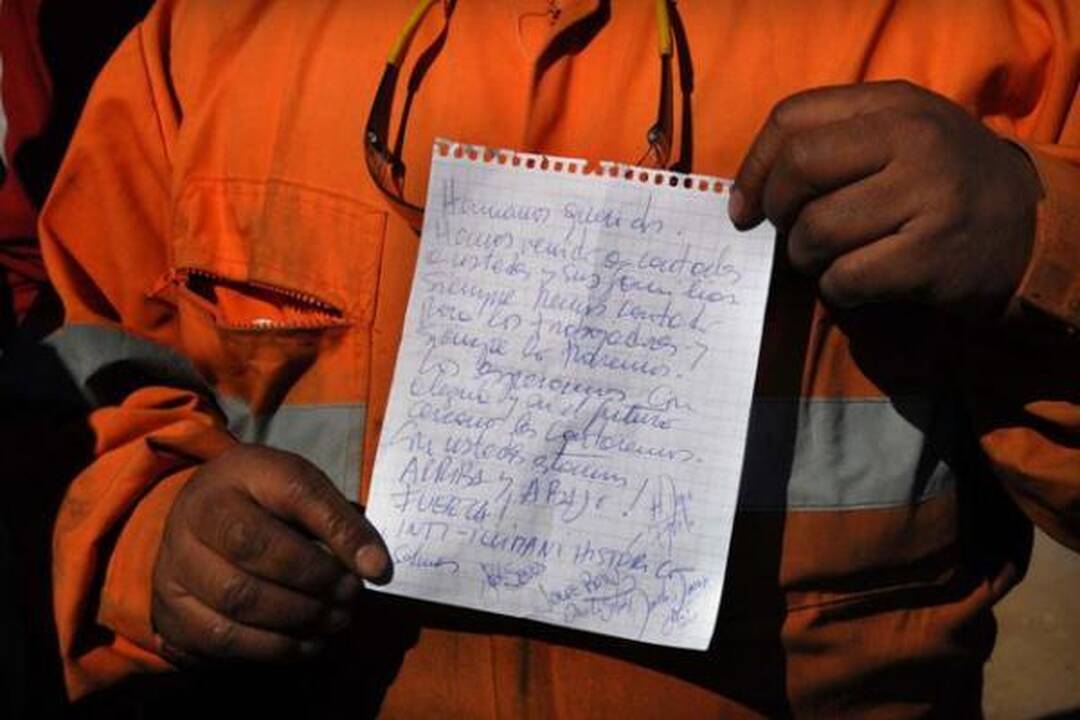 Hermanos queridos.
Hemos venido a cantarles
a ustedes y sus familias
Siempre hemos cantado
para los trabajadores y
siempre lo haremos.
Los esperamos con
alegría y en el futuro
cercano les cantaremos.
Con ustedes estamos
ARRIBA y ABAJO!
FUERZA!
INTI-ILLIMANI HISTÓRICO